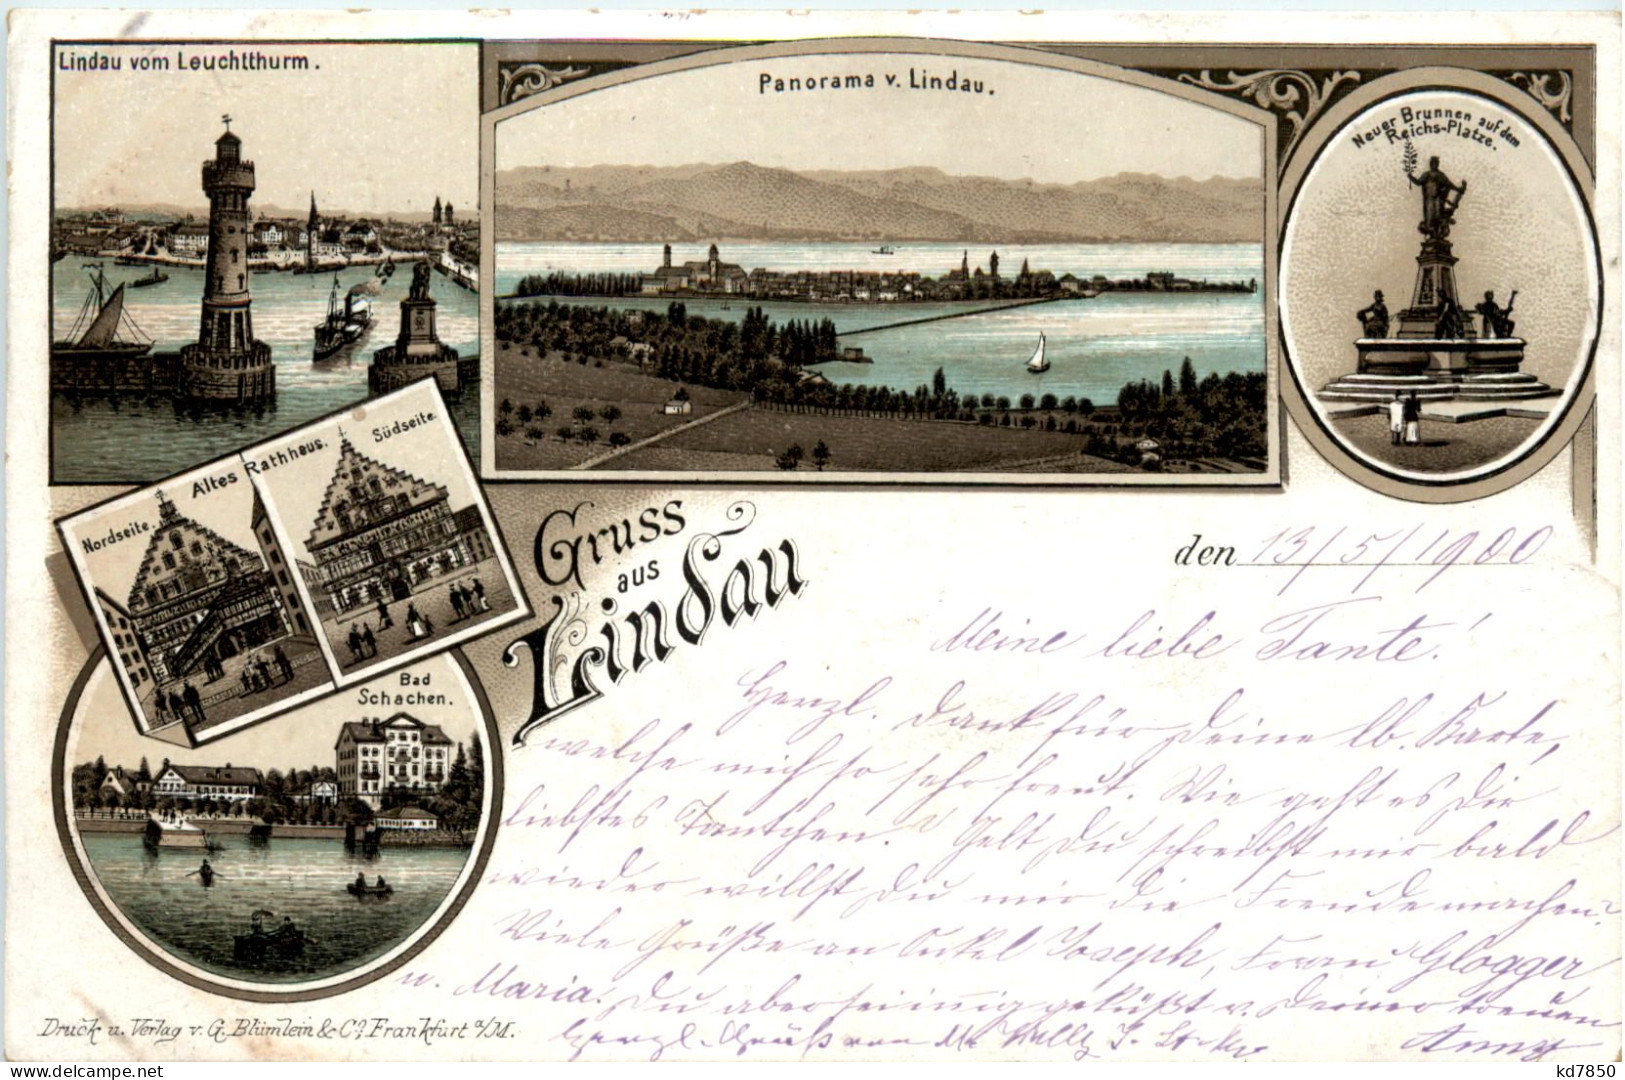 Lindau vom Leuchtthurm.
Panorama v. Lindau.
Neuer Brunnen auf dem
Reichs-Platze.
Altes Rathhaus.
Nordseite.
Südseite.
Bad
Schachen.
Gruss
aus
Lindau
den 13/5/1900
Meine liebe Tante!
Herzl. Dank für Deine lb. Karte,
welche mich so sehr freut. Wie geht es Dir
liebstes Tantchen? Gelt Du schreibst mir bald
wieder willst Du mir die Freude machen?
Viele Grüße an Onkel Joseph, Frau Glogger
u. Maria. Du aber seiinnig geküßt v. Deiner treuen
Herzl. Gruß von
Anny
Druck u. Verlag v. G. Blümlein & Co. Frankfurt a/M.
kd7850